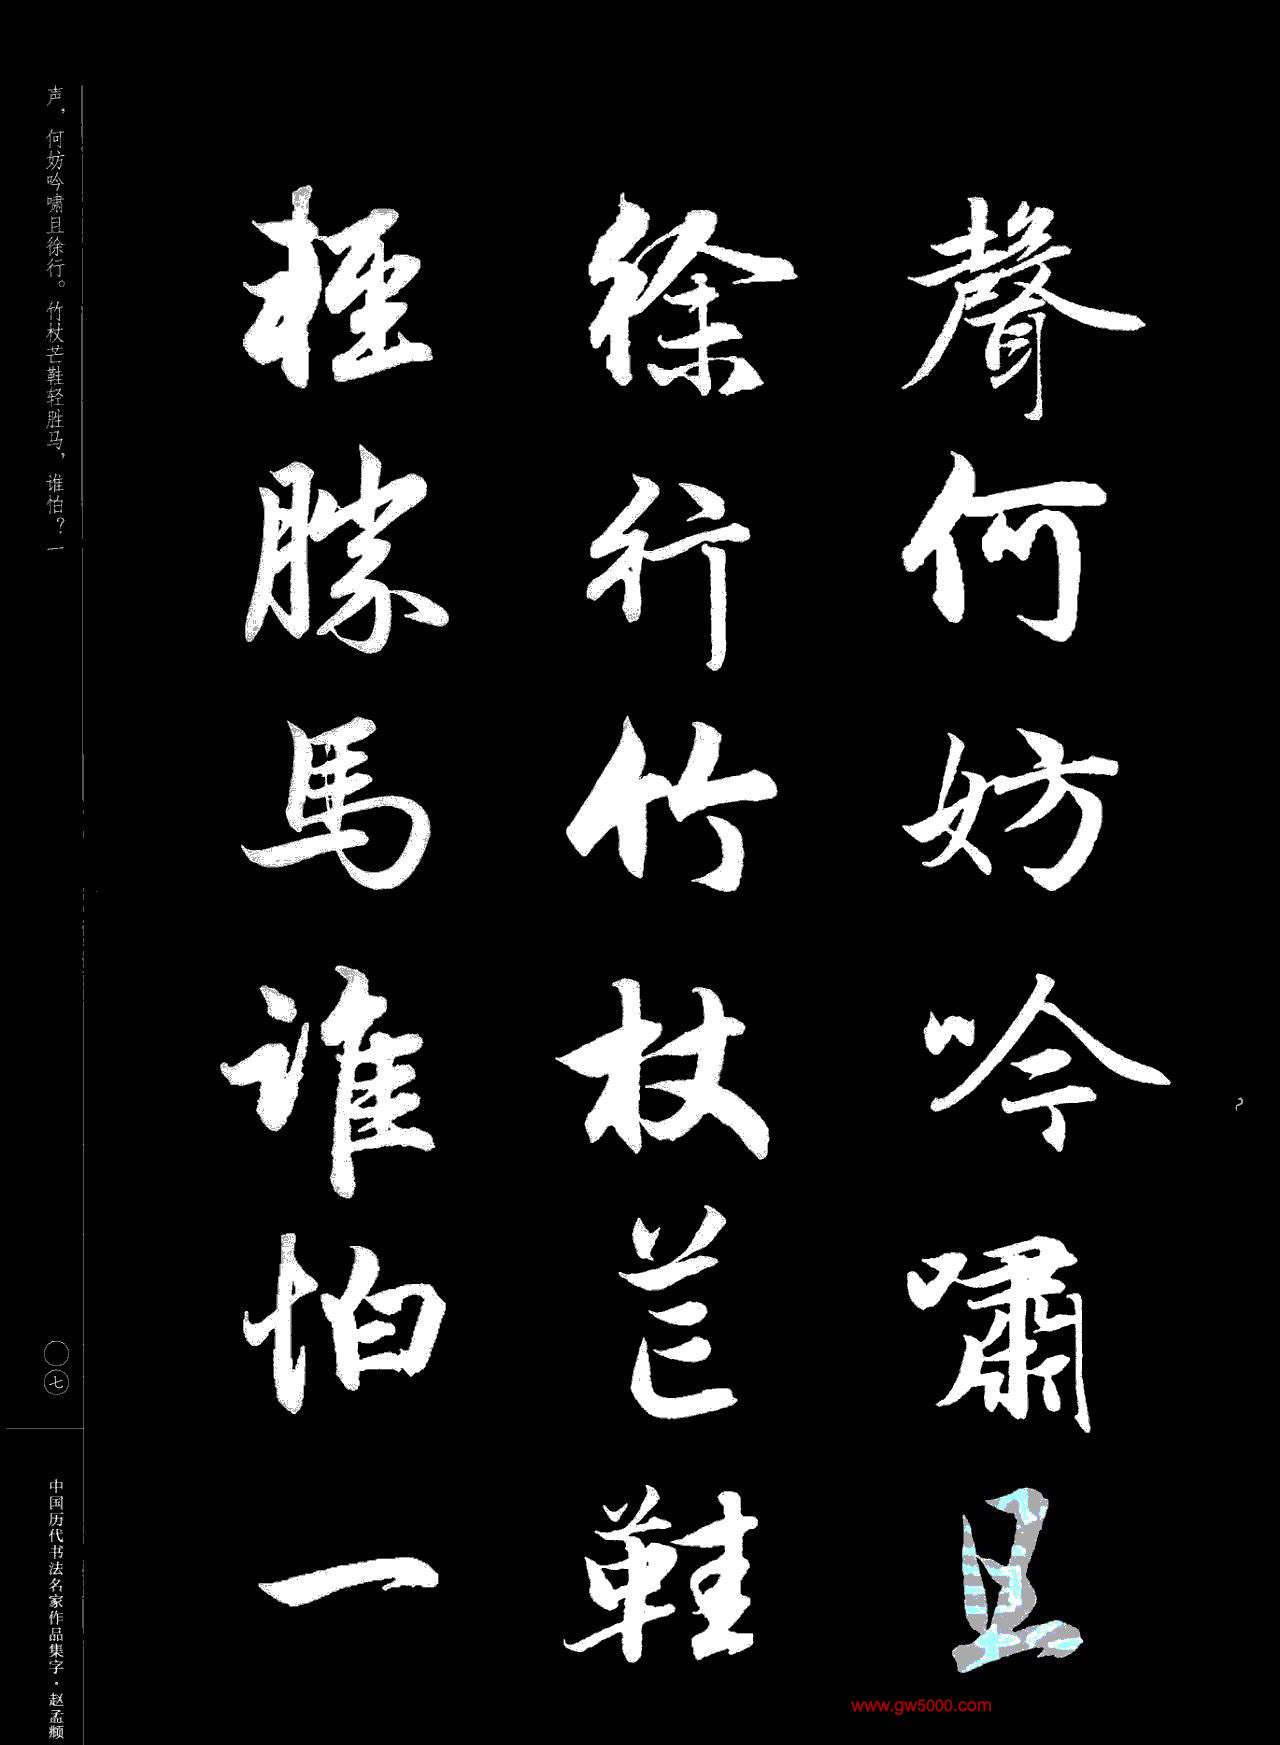 聲何妨吟嘯且
徐行竹杖芒鞋
輕勝馬誰怕一
声，何妨吟啸且徐行。竹杖芒鞋轻胜马，谁怕？一
〇七
中国历代书法名家作品集字·赵孟頫
www.gw5000.com